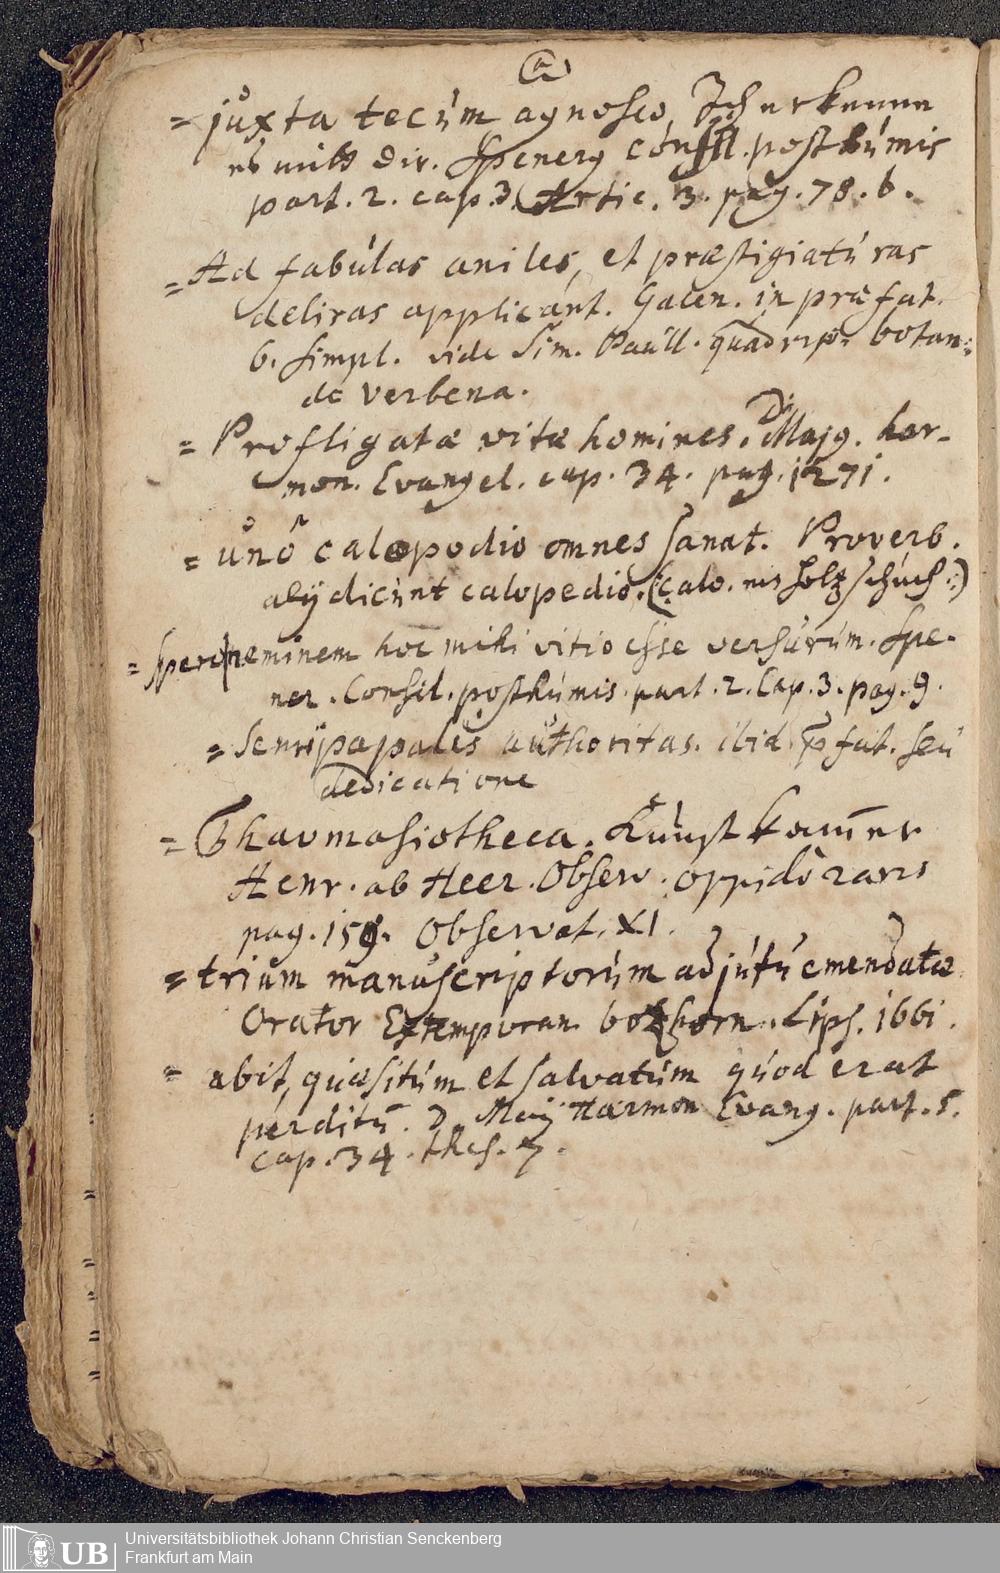 a
= juxta tecùm agnosco, Ich erkenne
es mitt dir. Spenerg consil. posthùmis
part. 2. cap. 3. Artic. 3. pag. 78. b.
= Ad fabùlas aniles, et præstigiatùras
deliras applicánt. Galen. in præfat.
6. simpl. vide Sim. Paùll. quadrip. botan:
de verbena.
= Profligatæ vitæ homines. D. Majg. har-
mon. Evangel. cap. 34. pag. 1271.
= ùnô calopodio omnes sanat. Proverb.
alÿ dicùnt calopedio. (: calo. ein holtz schùch :)
= spero neminem hoc mihi vitio esse versùrùm. Spe-
ner. Consil. posthùmis part. 2. Cap. 3. pag. 9.
= Semipapalis aùthoritas. ibid. p̄fat. seù
dedicatione
= Thavmasiotheca. Kùnst kam̄er
Henr. ab Heer. Observ. oppidò raris
pag. 159. Observat. XI.
= triùm manùscriptorùm adjùtù emendatæ
Orator Extemporan. boxhorn. Lips. 1661.
= abit, quæsitùm et salvatùm quod erat
perditū. D. Maij Harmon Evang. part. 5.
cap. 34. thes. 7.
Universitätsbibliothek Johann Christian Senckenberg
Frankfurt am Main
UB